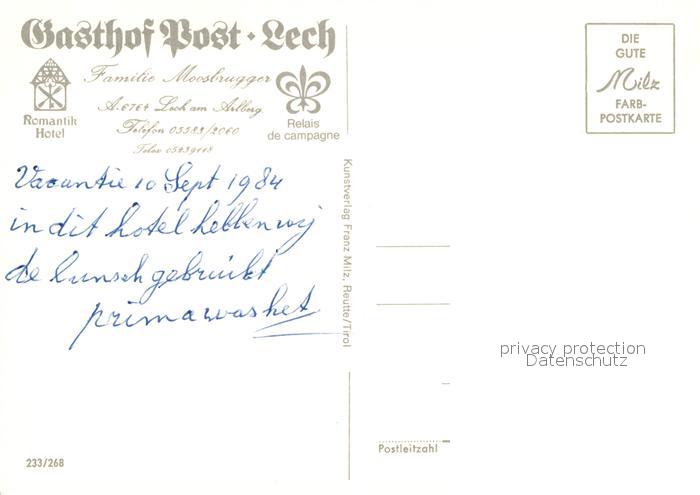 Gasthof Post · Lech
Familie Moosbrugger
A-6764 Lech am Arlberg
Telefon 05583/2060
Telex 05239118
Romantik
Hotel
Relais
de campagne
DIE
GUTE
Milz
FARB-
POSTKARTE
Vacantie 10 Sept 1984
in dit hotel hebben wij
de lunsch gebruikt
prima was het
Kunstverlag Franz Milz, Reutte/Tirol
privacy protection
Datenschutz
Postleitzahl
233/268